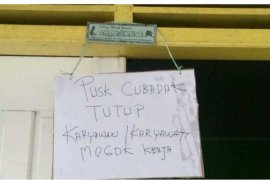 PUSK CUBADAK
TUTUP
KARYAWAN / KARYAWATI
MOGOK KERJA